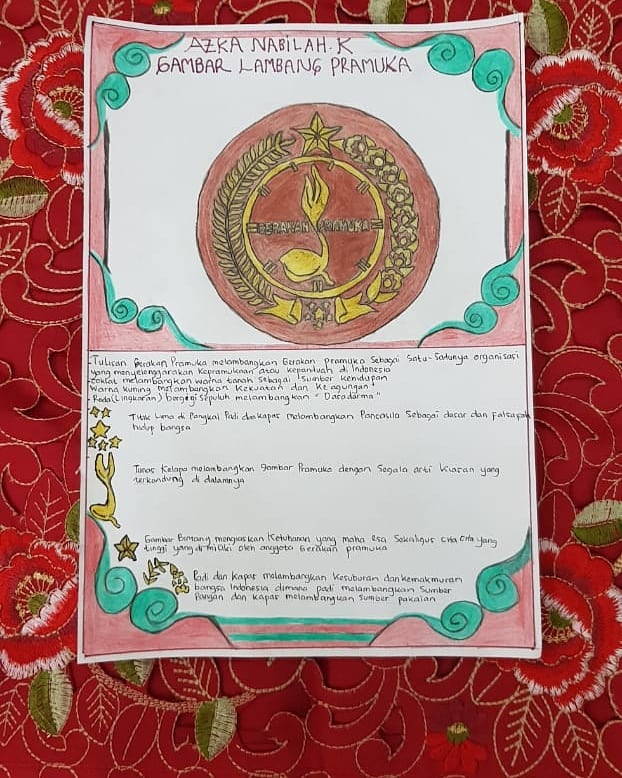 AZKA NABILAH.K
GAMBAR LAMBANG PRAMUKA
GERAKAN PRAMUKA
- Tulisan Gerakan Pramuka melambangkan Gerakan Pramuka Sebagai Satu-Satunya organisasi
yang menyelenggarakan Kepramukaan atau kepanduan di Indonesia
- Coklat melambangkan warna tanah Sebagai Sumber Kehidupan
Warna Kuning melambangkan Kekuatan dan Keagungan
- Roda (Lingkaran) bergigi Sepuluh melambangkan "Dasadarma"
Titik Lima di Pangkal Padi dan Kapas melambangkan Pancasila Sebagai dasar dan Falsafah
hidup bangsa
Tunas Kelapa melambangkan gambar Pramuka dengan Segala arti Kiasan yang
terkandung di dalamnya
Gambar Bintang mengiaskan Ketuhanan yang maha Esa Sekaligus Cita Cita yang
tinggi yang di miliki oleh anggota Gerakan pramuka
Padi dan Kapas melambangkan Kesuburan dan kemakmuran
bangsa Indonesia dimana padi melambangkan Sumber
Pangan dan Kapas melambangkan Sumber pakaian